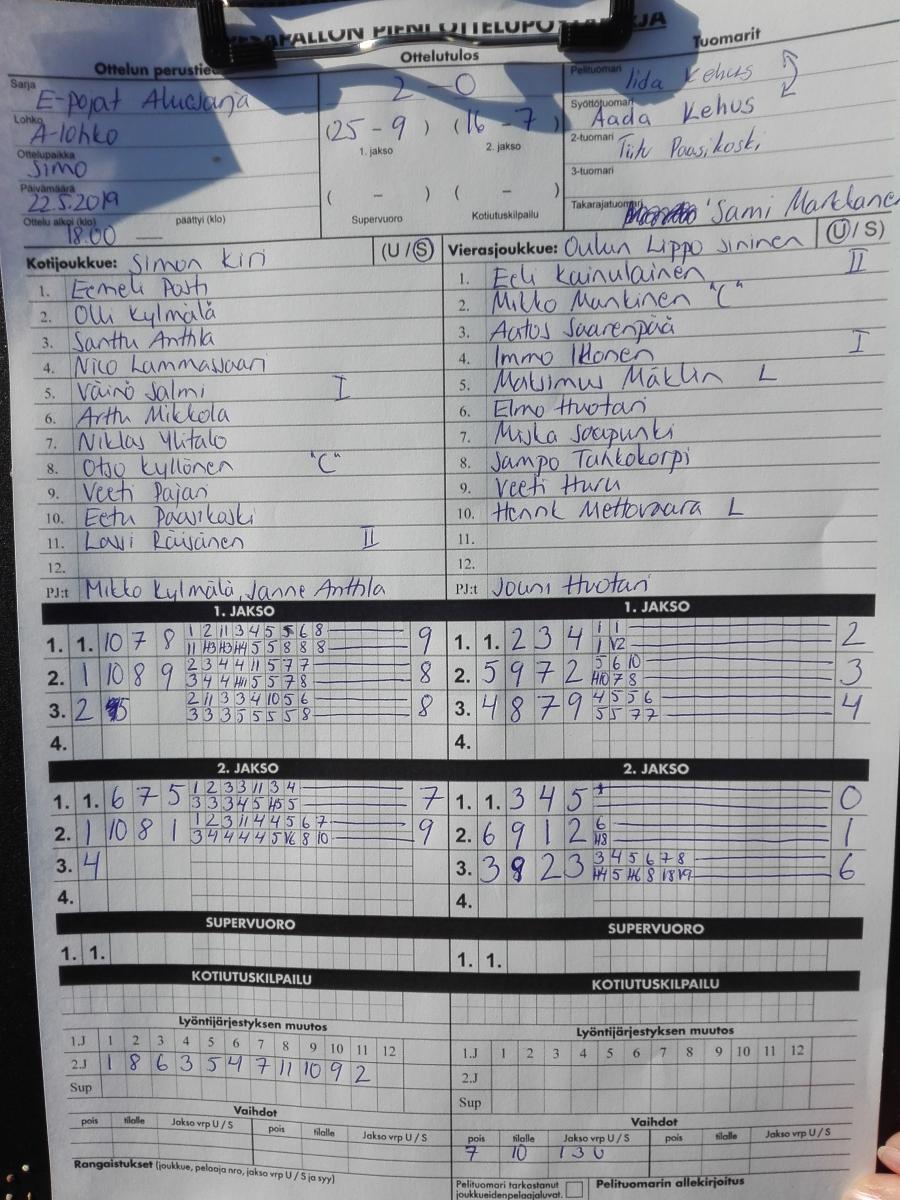 PESÄPALLON PIENI OTTELUPÖYTÄKIRJA
Ottelun perustiedot Ottelutulos Tuomarit
Sarja E-pojat Aluesarja
Lohko A-lohko
Ottelupaikka Simo
Päivämäärä 22.5.2019
Ottelu alkoi (klo) 18.00 päättyi (klo) —
2 - 0
(25 - 9) (16 - 7)
1. jakso 2. jakso
( - ) ( - )
Supervuoro Kotiutuskilpailu
Pelituomari Iida Kehus
Syöttötuomari Aada Kehus
2-tuomari Tiitu Paasikoski
3-tuomari
Takarajatuomari Sami Markkanen
Kotijoukkue: Simon Kiri (U / S)
1. Eemeli Posti
2. Olli Kylmälä
3. Santtu Anthla
4. Nico Lammassaari
5. Väinö Salmi I
6. Arttu Mikkola
7. Niklas Ylitalo
8. Otso Kyllönen "C"
9. Veeti Pajari
10. Eetu Paasikoski
11. Lassi Räisänen II
12.
PJ:t Mikko Kylmälä, Janne Anthla
Vierasjoukkue: Oulun Lippo sininen (U / S)
1. Eeli Kainulainen II
2. Mikko Mankinen "C"
3. Aatos Saarenpää
4. Immo Ikonen I
5. Maksimus Mäklin L
6. Elmo Huotari
7. Miska Saapunki
8. Sampo Tahkokorpi
9. Veeti Huru
10. Henrik Mettovaara L
11.
12.
PJ:t Jouni Huotari
1. JAKSO
1. 1. 10 7 8 1 2 11 3 4 5 5 6 8 9
11 H3 H3 H4 5 5 8 8 8
2. 1 10 8 9 2 3 4 4 11 5 7 7 8
3 4 4 H11 5 5 7 8
3. 2 5 2 11 3 3 4 10 5 6 8
3 3 3 5 5 5 5 8
4.
1. JAKSO
1. 1. 2 3 4 1 1 2
1 V2
2. 5 9 7 2 5 6 10 3
H10 7 8
3. 4 8 7 9 4 5 5 6 4
5 5 7 7
4.
2. JAKSO
1. 1. 6 7 5 1 2 3 3 11 3 4 7
3 3 3 4 5 H5 5
2. 1 10 8 1 1 2 3 11 4 4 5 6 7 9
3 4 4 4 4 5 V6 8 10
3. 4
4.
2. JAKSO
1. 1. 3 4 5 0
2. 6 9 1 2 6 1
H8
3. 3 9 2 3 3 4 5 6 7 8 6
H4 5 H6 8 18 19
4.
SUPERVUORO
1. 1.
SUPERVUORO
1. 1.
KOTIUTUSKILPAILU
KOTIUTUSKILPAILU
Lyöntijärjestyksen muutos
1.J 1 2 3 4 5 6 7 8 9 10 11 12
2.J 1 8 6 3 5 4 7 11 10 9 2
Sup
Lyöntijärjestyksen muutos
1.J 1 2 3 4 5 6 7 8 9 10 11 12
2.J
Sup
Vaihdot
pois tilalle Jakso vrp U / S pois tilalle Jakso vrp U / S
Rangaistukset (joukkue, pelaaja nro, jakso vrp U / S ja syy)
Vaihdot
pois tilalle Jakso vrp U / S pois tilalle Jakso vrp U / S
7 10 1 3 U
Pelituomari tarkastanut
joukkueidenpelaajaluvat.
Pelituomarin allekirjoitus